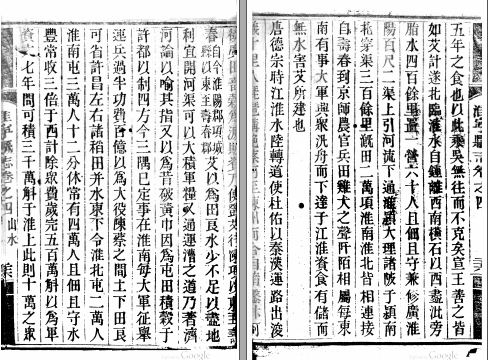 廣田
春 自今淮陽郡項城 縣以東至壽春郡 艾以為田良水少不足以盡地
利宜開河渠可以大積軍糧又通運漕之道乃著濟
河論以喻其指又以為昔破黃巾因為屯田積穀于
許都以制四方今三隅已定事在淮南每大軍征舉
運兵過半功費巨億以為大役陳蔡之間土下田良
可省許昌左右諸稻田并水東下令淮北屯二萬人
淮南屯三萬人十二分休常有四萬人且佃且守水
豐常收三倍于西計除衆費歲完五百萬斛以為軍
資六七年間可積三千萬斛于淮上此則十萬之衆
淮寧縣志卷之四 山水
淮寧縣志卷之四
五年之食也以此乘吳無往而不克矣宣王善之皆
如艾計遂北臨淮水自鍾離西南橫石以西盡沘旁
脂水四百餘里置一營六十人且佃且守兼修廣淮
陽百尺二渠上引河流下通淮潁大理諸陂于潁南
北穿渠三百餘里溉田二萬頃淮南淮北皆相連接
自壽春到京師農官兵田雞犬之聲阡陌相屬每東
南有事大軍興衆泛舟而下達于江淮資食有儲而
無水害艾所建也
唐德宗時江淮水陸轉道使杜佑以秦漢運路出浚
儀十里入